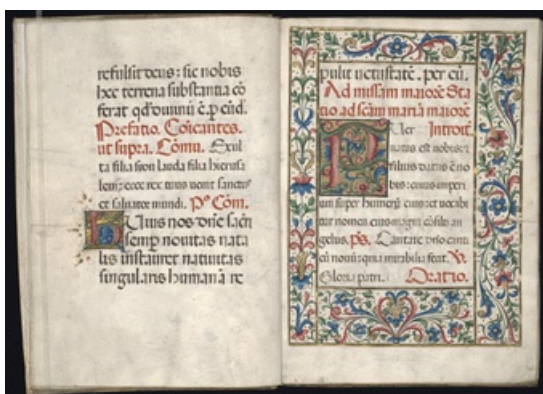 refulsit deus: sic nobis
hec terrena substantia cō
ferat qd̓ diuinū ē. p eūd.
Prefatio. Cōicantes.
ut supra. Cōmu. Exul
ta filia sion lauda filia hierusa
lem: ecce rex tuus uenit sanctus
et saluator mundi. Pº Cōm.
Huius nos dn̄e sacri
semp nouitas nata
lis instauret natiuitas
singularis humanā re
pulit uetustatē. per eū.
Ad missam maiorē Sta
tio ad scām mariā maiorē
Puer Introit.
natus est nobis: et
filius datus ē no
bis: cuius imperi
um super humerū eius: et uocabi
tur nomen eius magni cōsilii an
gelus. ps. Cantate dn̄o canti
cū nouū: quia mirabilia fecit. V.
Gloria patri. Oratio.